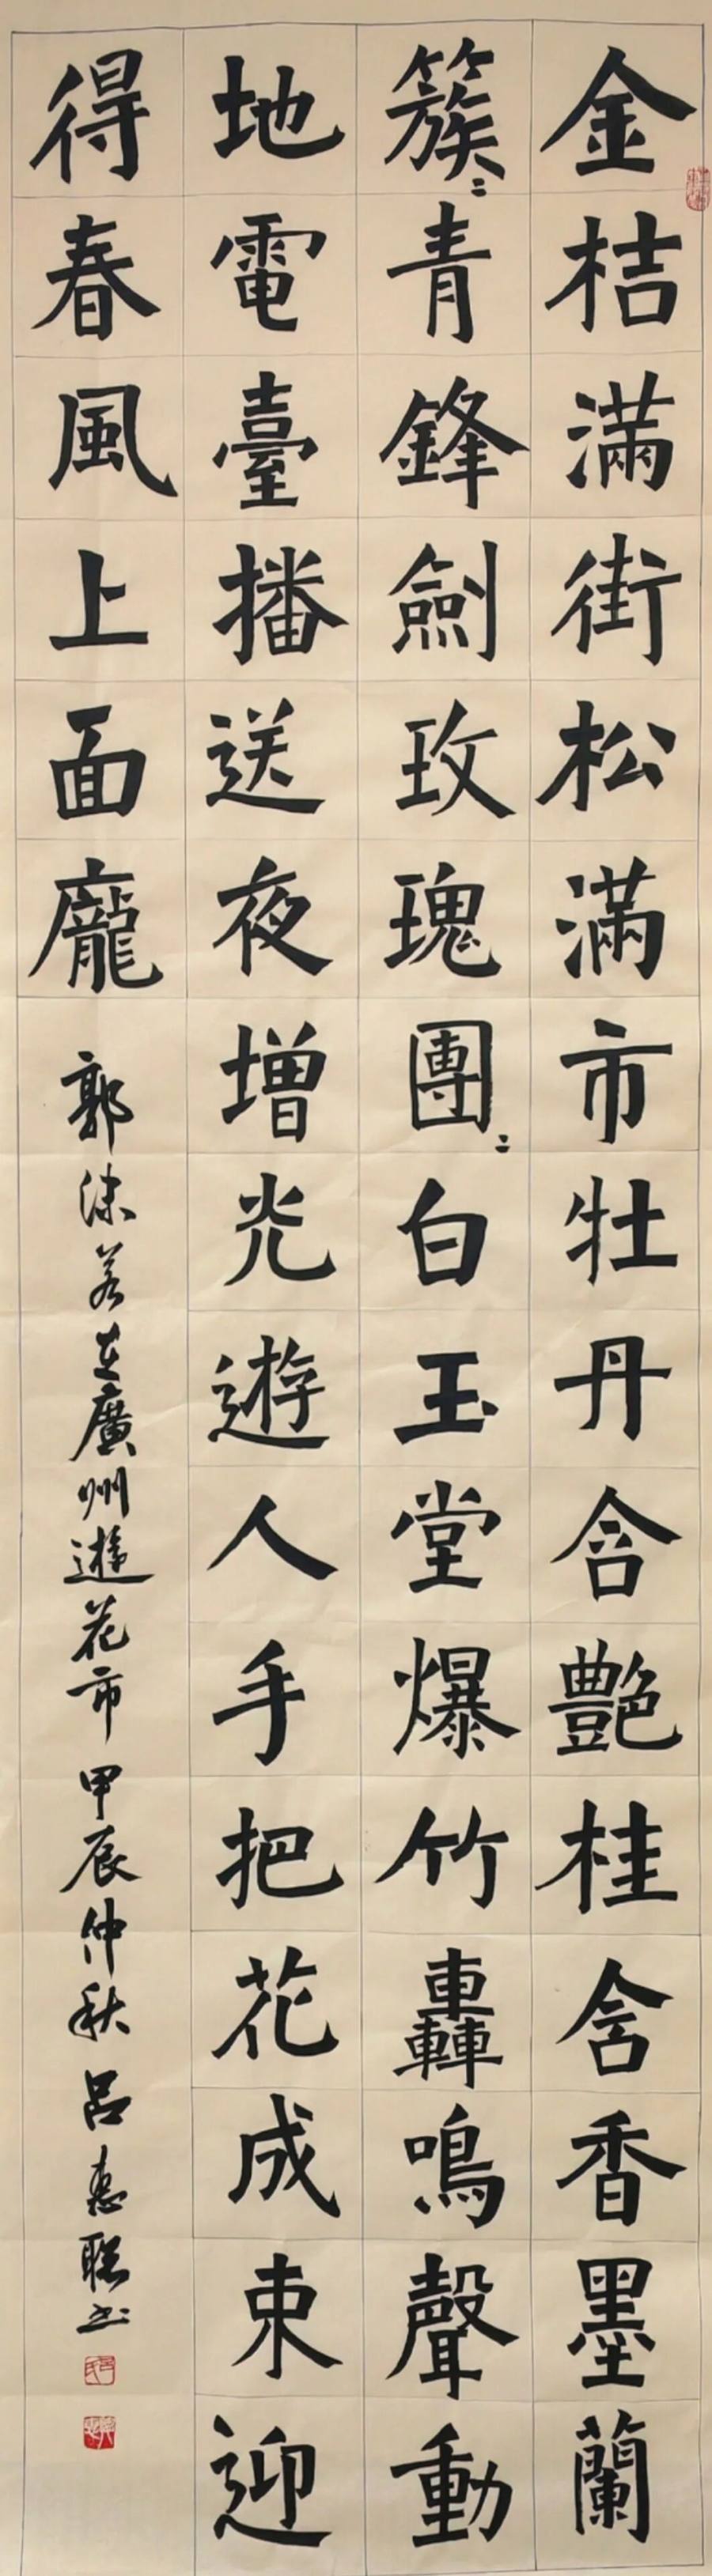 金桔滿街松滿市牡丹含艶桂含香墨蘭
簇〻青鋒劍玫瑰團〻白玉堂爆竹轟鳴聲動
地電臺播送夜增光遊人手把花成束迎
得春風上面龐 郭沫若在廣州遊花市 甲辰仲秋 呂惠聰书